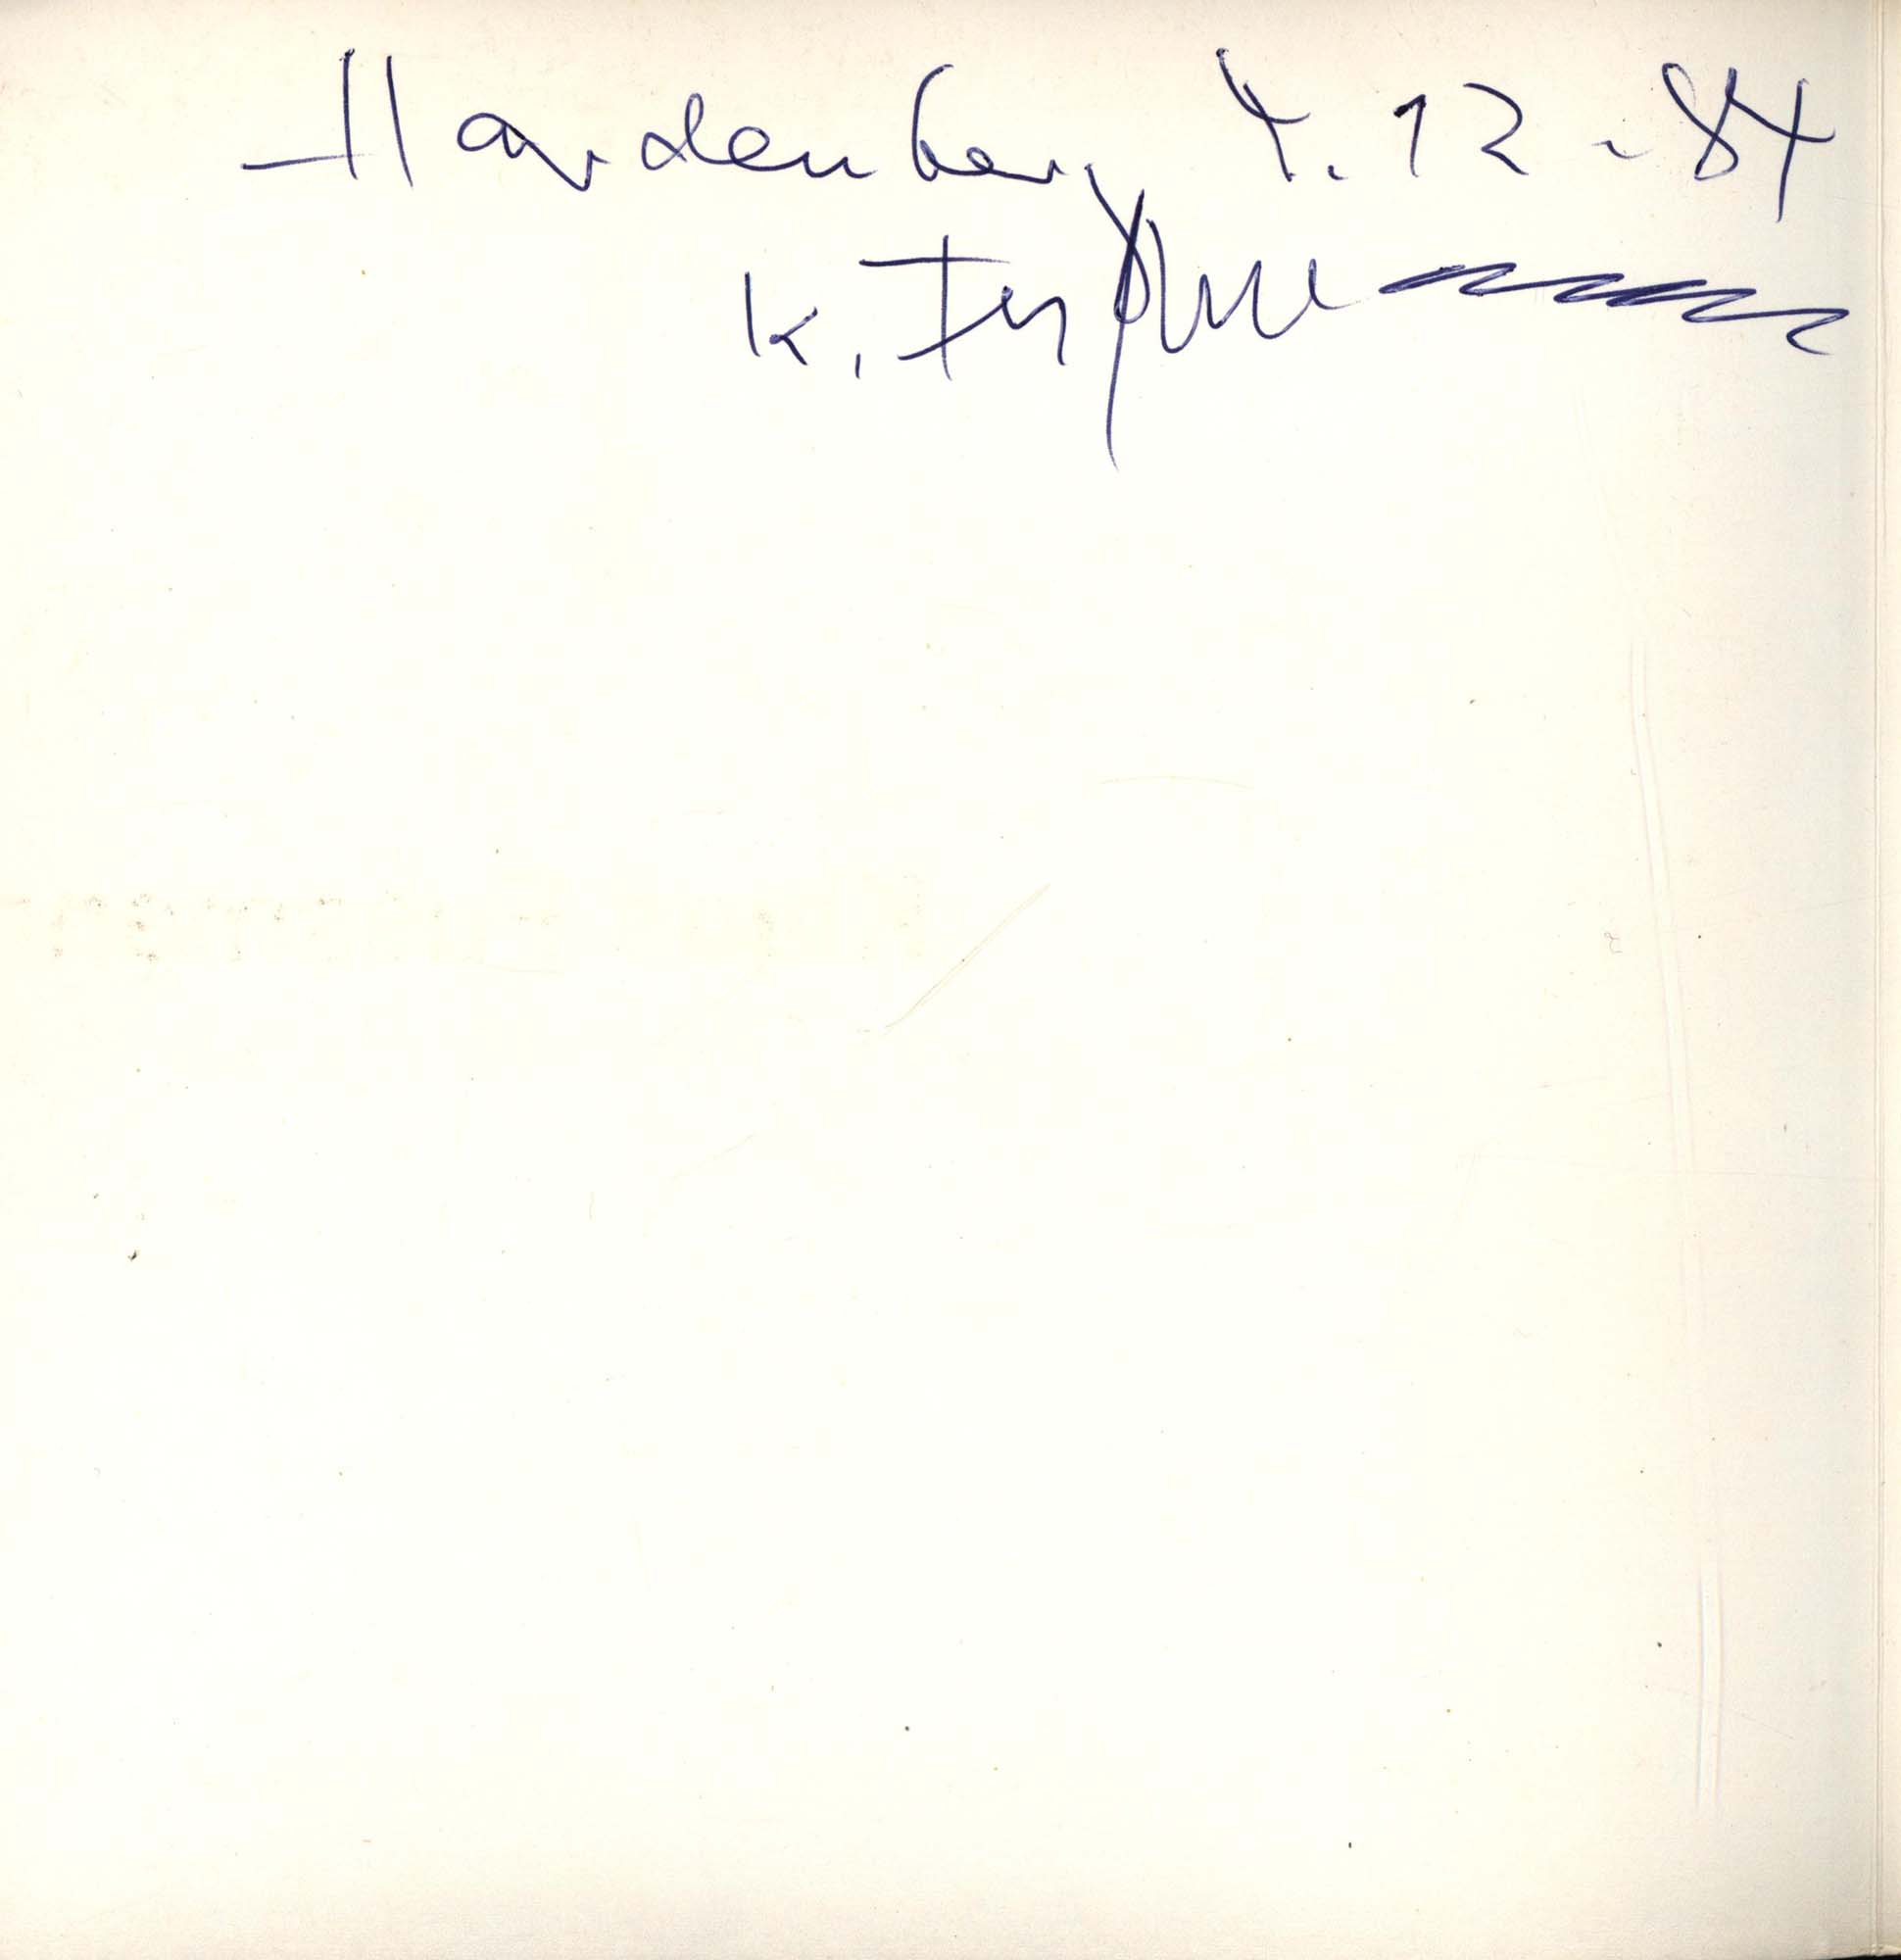 Hardenberg 4.12-84
K.